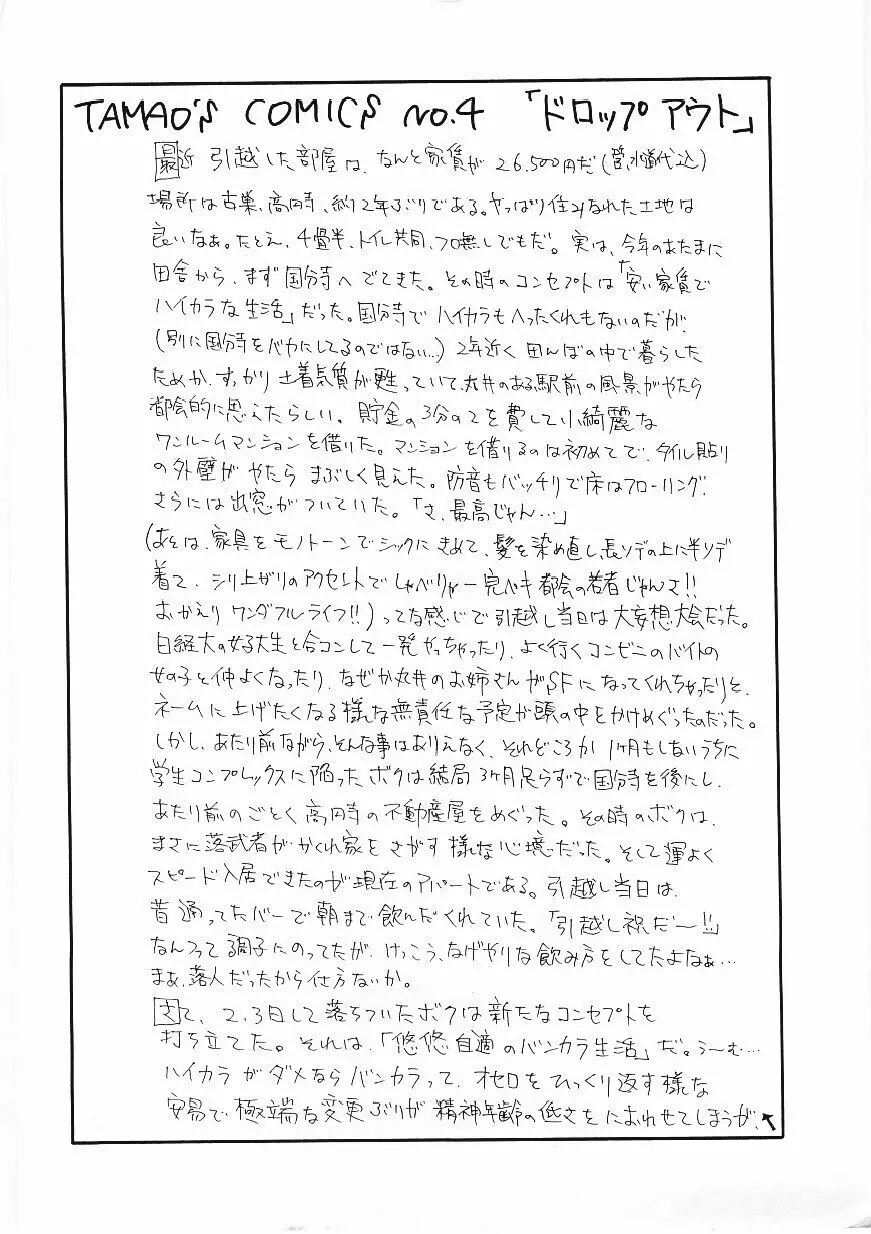 TAMAO'S COMICS NO.4 「ドロップアウト」
最近 引越した部屋は、なんと家賃が 26.500円だ(管、水道代込)
場所は古巣、高円寺、約2年ぶりである。やっぱり住みなれた土地は
良いなぁ。たとえ、4畳半、トイレ共同、フロ無しでもだ。実は、今年のあたまに
田舎から、まず国分寺へでてきた。その時のコンセプトは「安い家賃で
ハイカラな生活」だった。国分寺でハイカラもへったくれもないのだが、
(別に国分寺をバカにしてるのではない…)2年近く田んぼの中で暮らした
ためか、すっかり土着気質が甦っていて、丸井のある駅前の風景がやたら
都会的に思えたらしい。貯金の3分の2を費して小綺麗な
ワンルームマンションを借りた。マンションを借りるのは初めてで、タイル貼り
の外壁がやたら まぶしく見えた。防音もバッチリで床はフローリング、
さらには出窓がついていた。「さ、最高じゃん…」
(あとは、家具をモノトーンでシックにきめて、髪を染め直し、長ソデの上に半ソデ
着て、シリ上がりのアクセントでしゃべりゃー完ペキ都会の若者じゃんさ!!
おかえり ワンダフルライフ!!)ってな感じで引越し当日は大妄想大会だった。
日経大の女子大生と合コンして一発やっちゃったり、よく行くコンビニのバイトの
女の子と仲よくなったり、なぜか丸井のお姉さんがSFになってくれちゃったりと、
ネームに上げたくなる様な無責任な予定が頭の中をかけめぐったのだった。
しかし、あたり前ながら、そんな事はありえなく、それどころか1ヶ月もしないうちに
学生コンプレックスに陥ったボクは結局3ヶ月足らずで国分寺を後にし、
あたり前のごとく高円寺の不動産屋をめぐった。その時のボクは、
まさに落武者がかくれ家をさがす様な心境だった。そして運よく
スピード入居できたのが現在のアパートである。引越し当日は、
昔通ってたバーで朝まで飲んだくれていた。「引越し祝だ〜!!」
なんつって調子にのってたが、けっこう、なげやりな飲み方をしてたよなぁ…
まぁ、落人だったから仕方ないか。
さて、2、3日して落ちついたボクは新たなコンセプトを
打ち立てた。それは、「悠悠自適のバンカラ生活」だ。う〜む…
ハイカラがダメならバンカラって、オセロをひっくり返す様な
安易で極端な変更ぶりが精神年齢の低さをにおわせてしまうが、